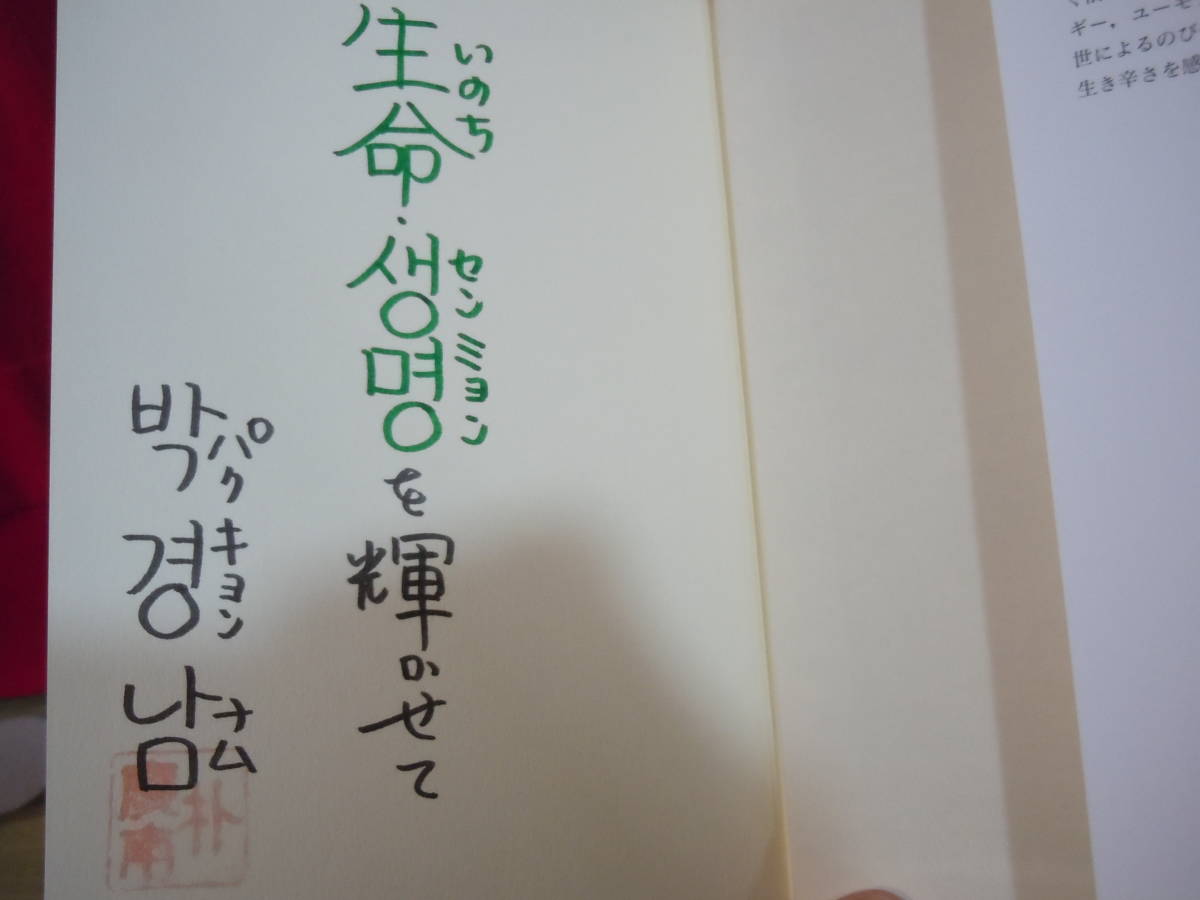 生命・생명を輝かせて
いのち
センミョン
박경남
パクキョンナム
朴
慶南
ギー，ユーモ
世によるのび
生き辛さを感